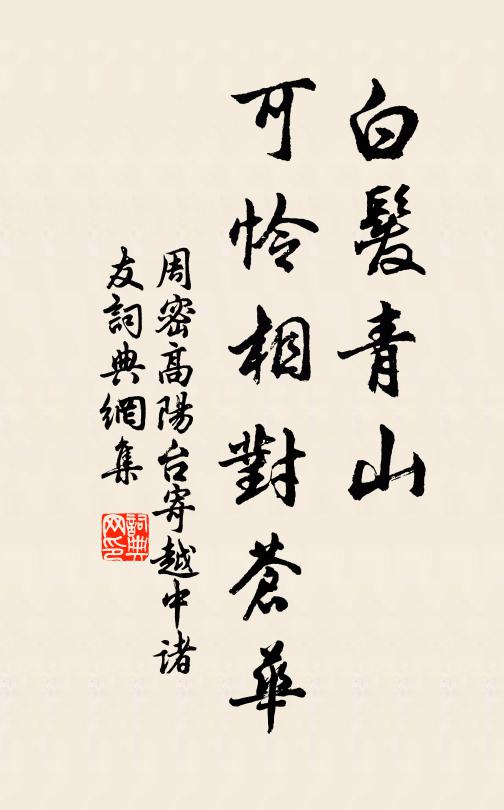 白髮青山
可怜相對蒼華
周密高陽台寄越中诸
友詞典網集
詞典
网印